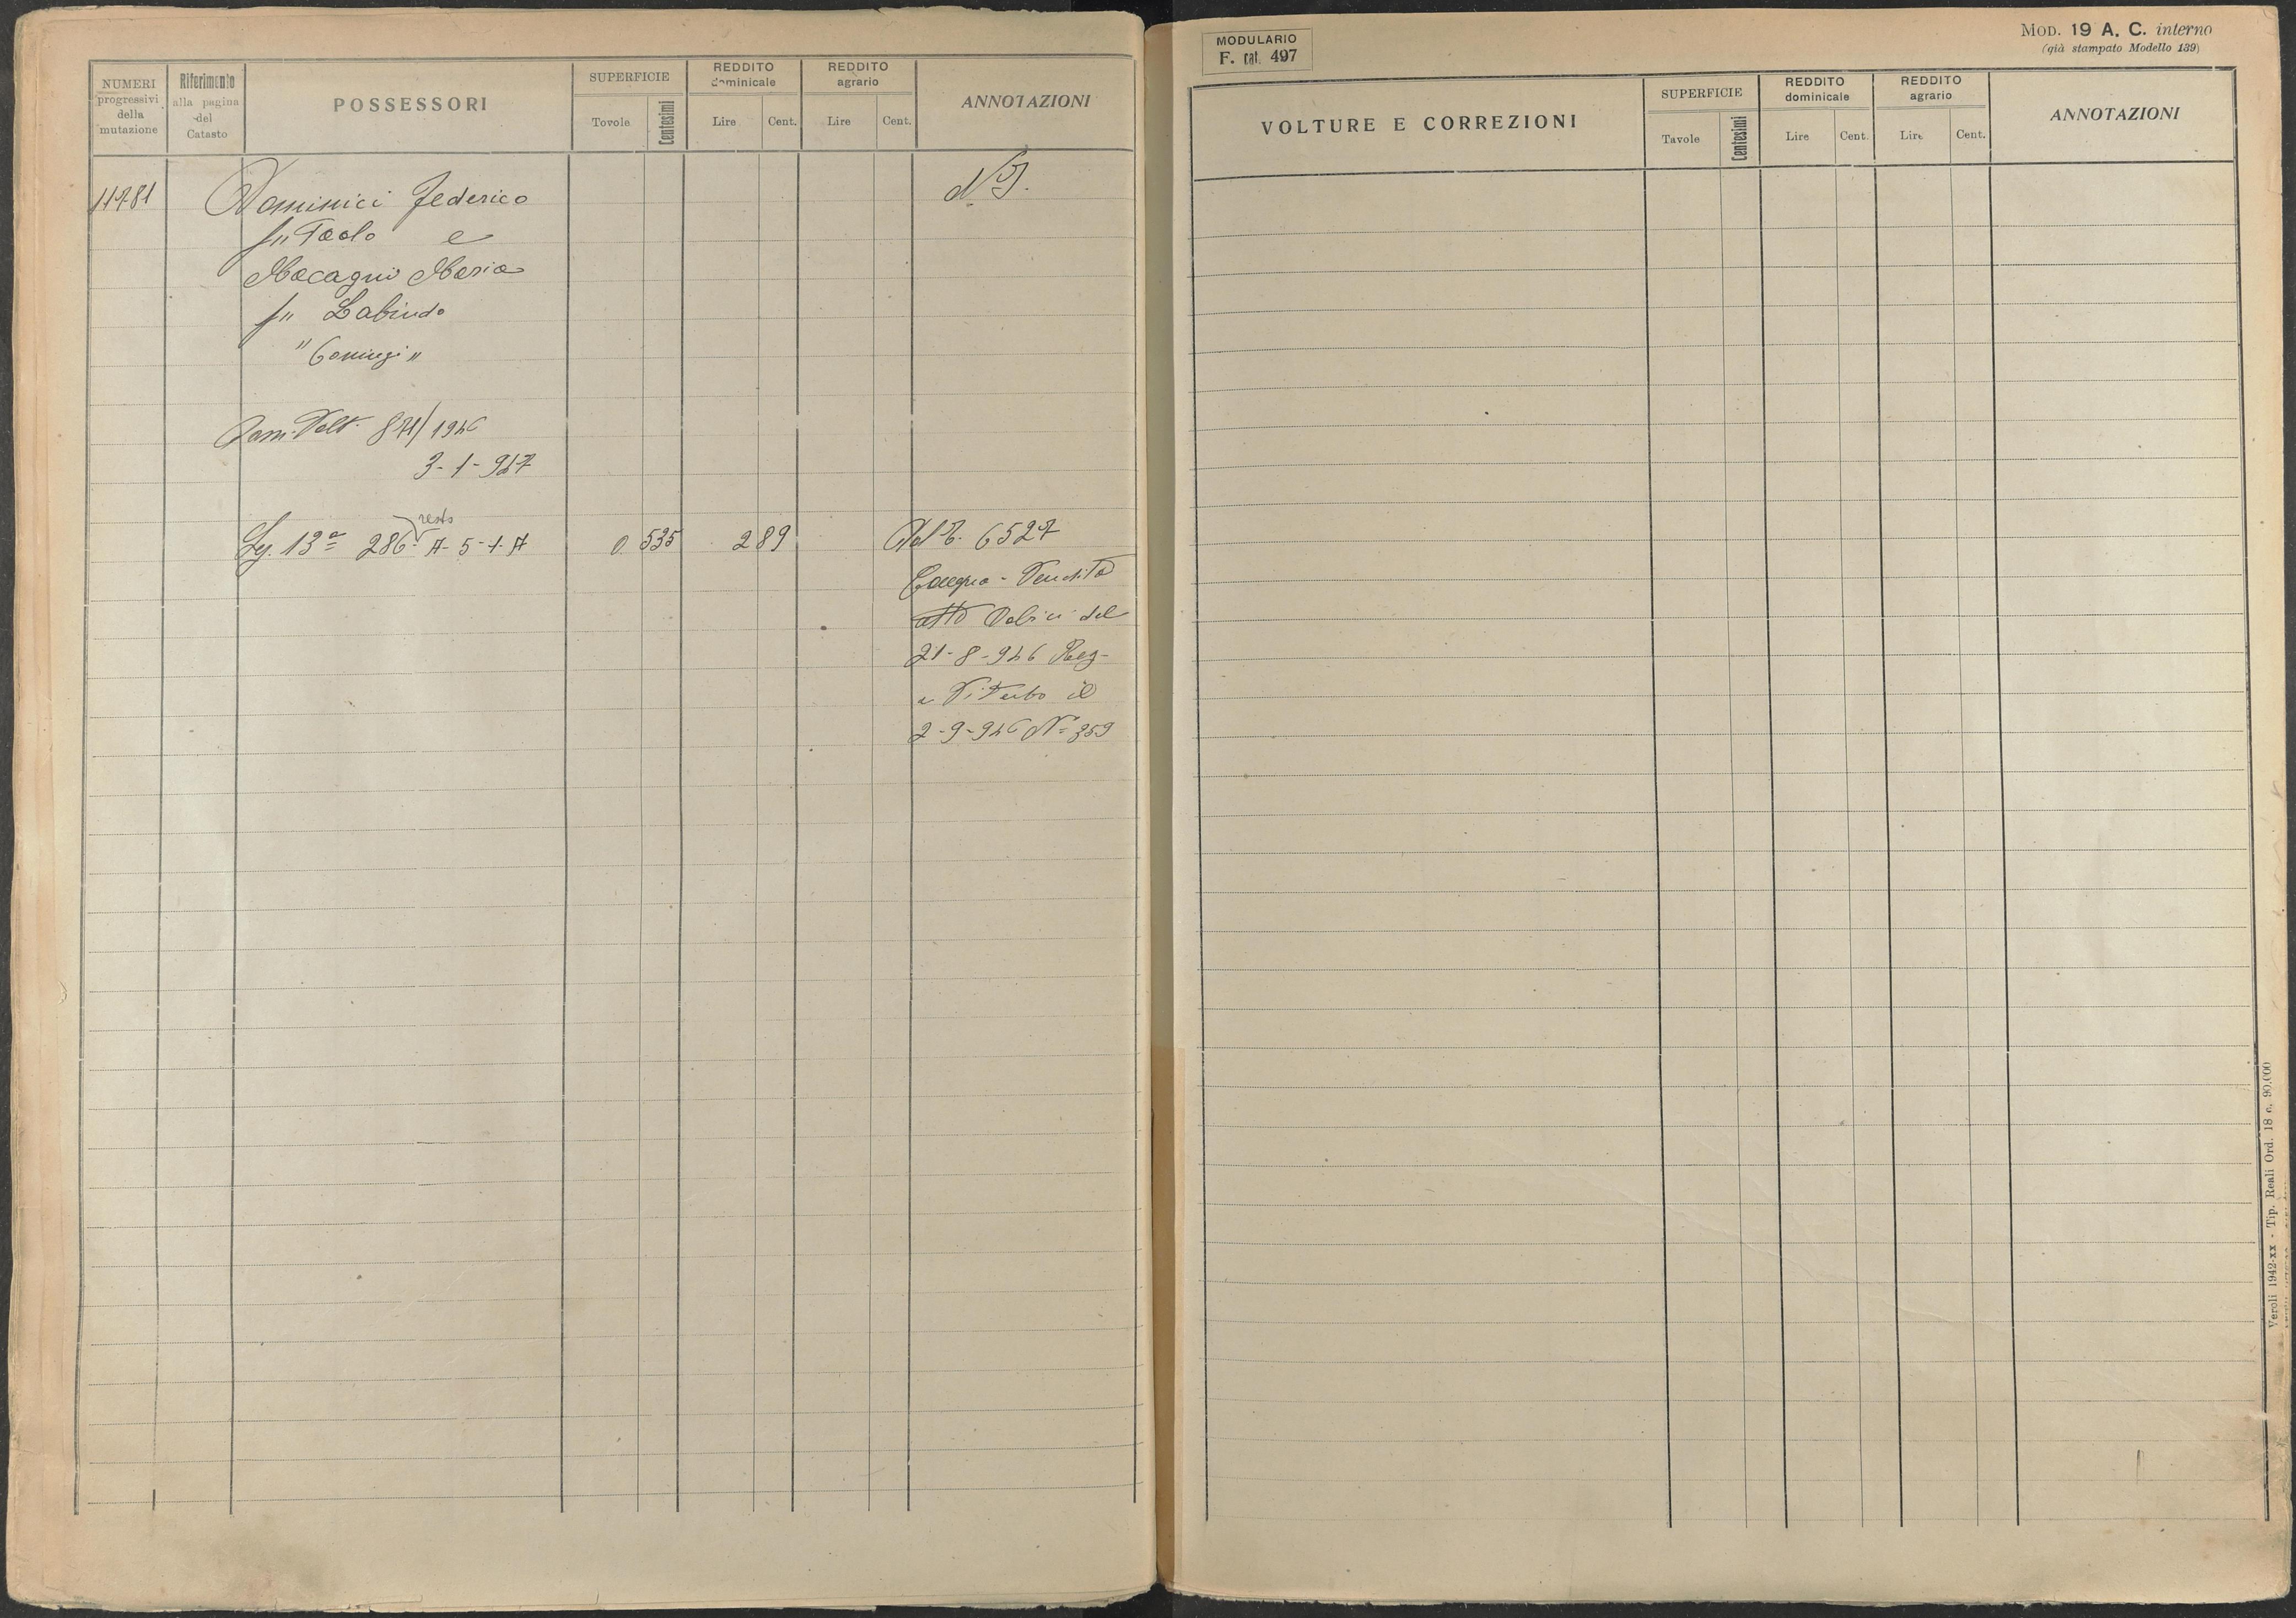 NUMERI
progressivi
della
mutazione
Riferimento
alla pagina
del
Catasto
POSSESSORI
SUPERFICIE
Tavole
Centesimi
REDDITO
dominicale
Lire
Cent.
REDDITO
agrario
Lire
Cent.
ANNOTAZIONI
11781
Dominici Federico
fu Paolo e
Macagni Maria
fu Labindo
"Coniugi"
Dom. Volt. 871/1946
3-1-947
resto
Sez. 13ª 286- A-5-1-A
0 535
2 89
N.I.
Dal P. 6527
Compra-Vendita
atto del
21-8-946 Reg-
a Viterbo il
2-9-946 Nº 359
MODULARIO
F. cat. 497
MOD. 19 A. C. interno
(già stampato Modello 139)
VOLTURE E CORREZIONI
SUPERFICIE
Tavole
Centesimi
REDDITO
dominicale
Lire
Cent.
REDDITO
agrario
Lire
Cent.
ANNOTAZIONI
Veroli 1942-XX - Tip. Reali Ord. 18 c. 90.000